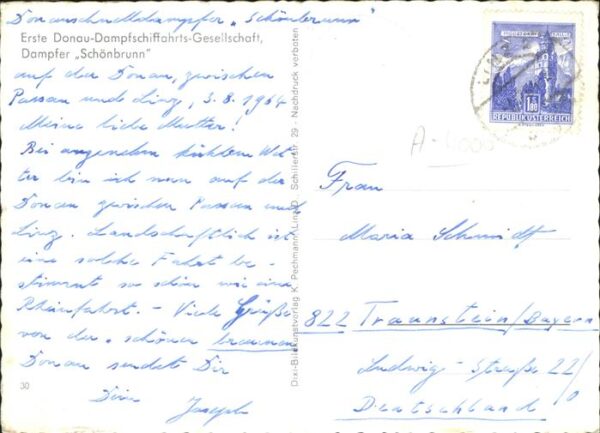 Donauschnelldampfer „Schönbrunn“
Erste Donau-Dampfschiffahrts-Gesellschaft,
Dampfer „Schönbrunn“
auf der Donau, zwischen
Passau und Linz, 3.8.1964
Meine liebe Mutter!
Bei angenehm kühlem Wet-
ter bin ich nun auf der
Donau zwischen Passau und
Linz. Landschaftlich ist
eine solche Fahrt be-
stimmt so schön wie eine
Rheinfahrt. - Viele Grüße
von der „schönen braunen
Donau sendet Dir
Dein Joseph
30
Dixi-Bildkunstverlag K. Pechmann, Linz/D. Schillerstr. 29 - Nachdruck verboten
1.80
REPUBLIK ÖSTERREICH
LINZ
Frau
Maria Schmidt
822 Traunstein/Bayern
Ludwig-Straße 22/
0
Deutschland